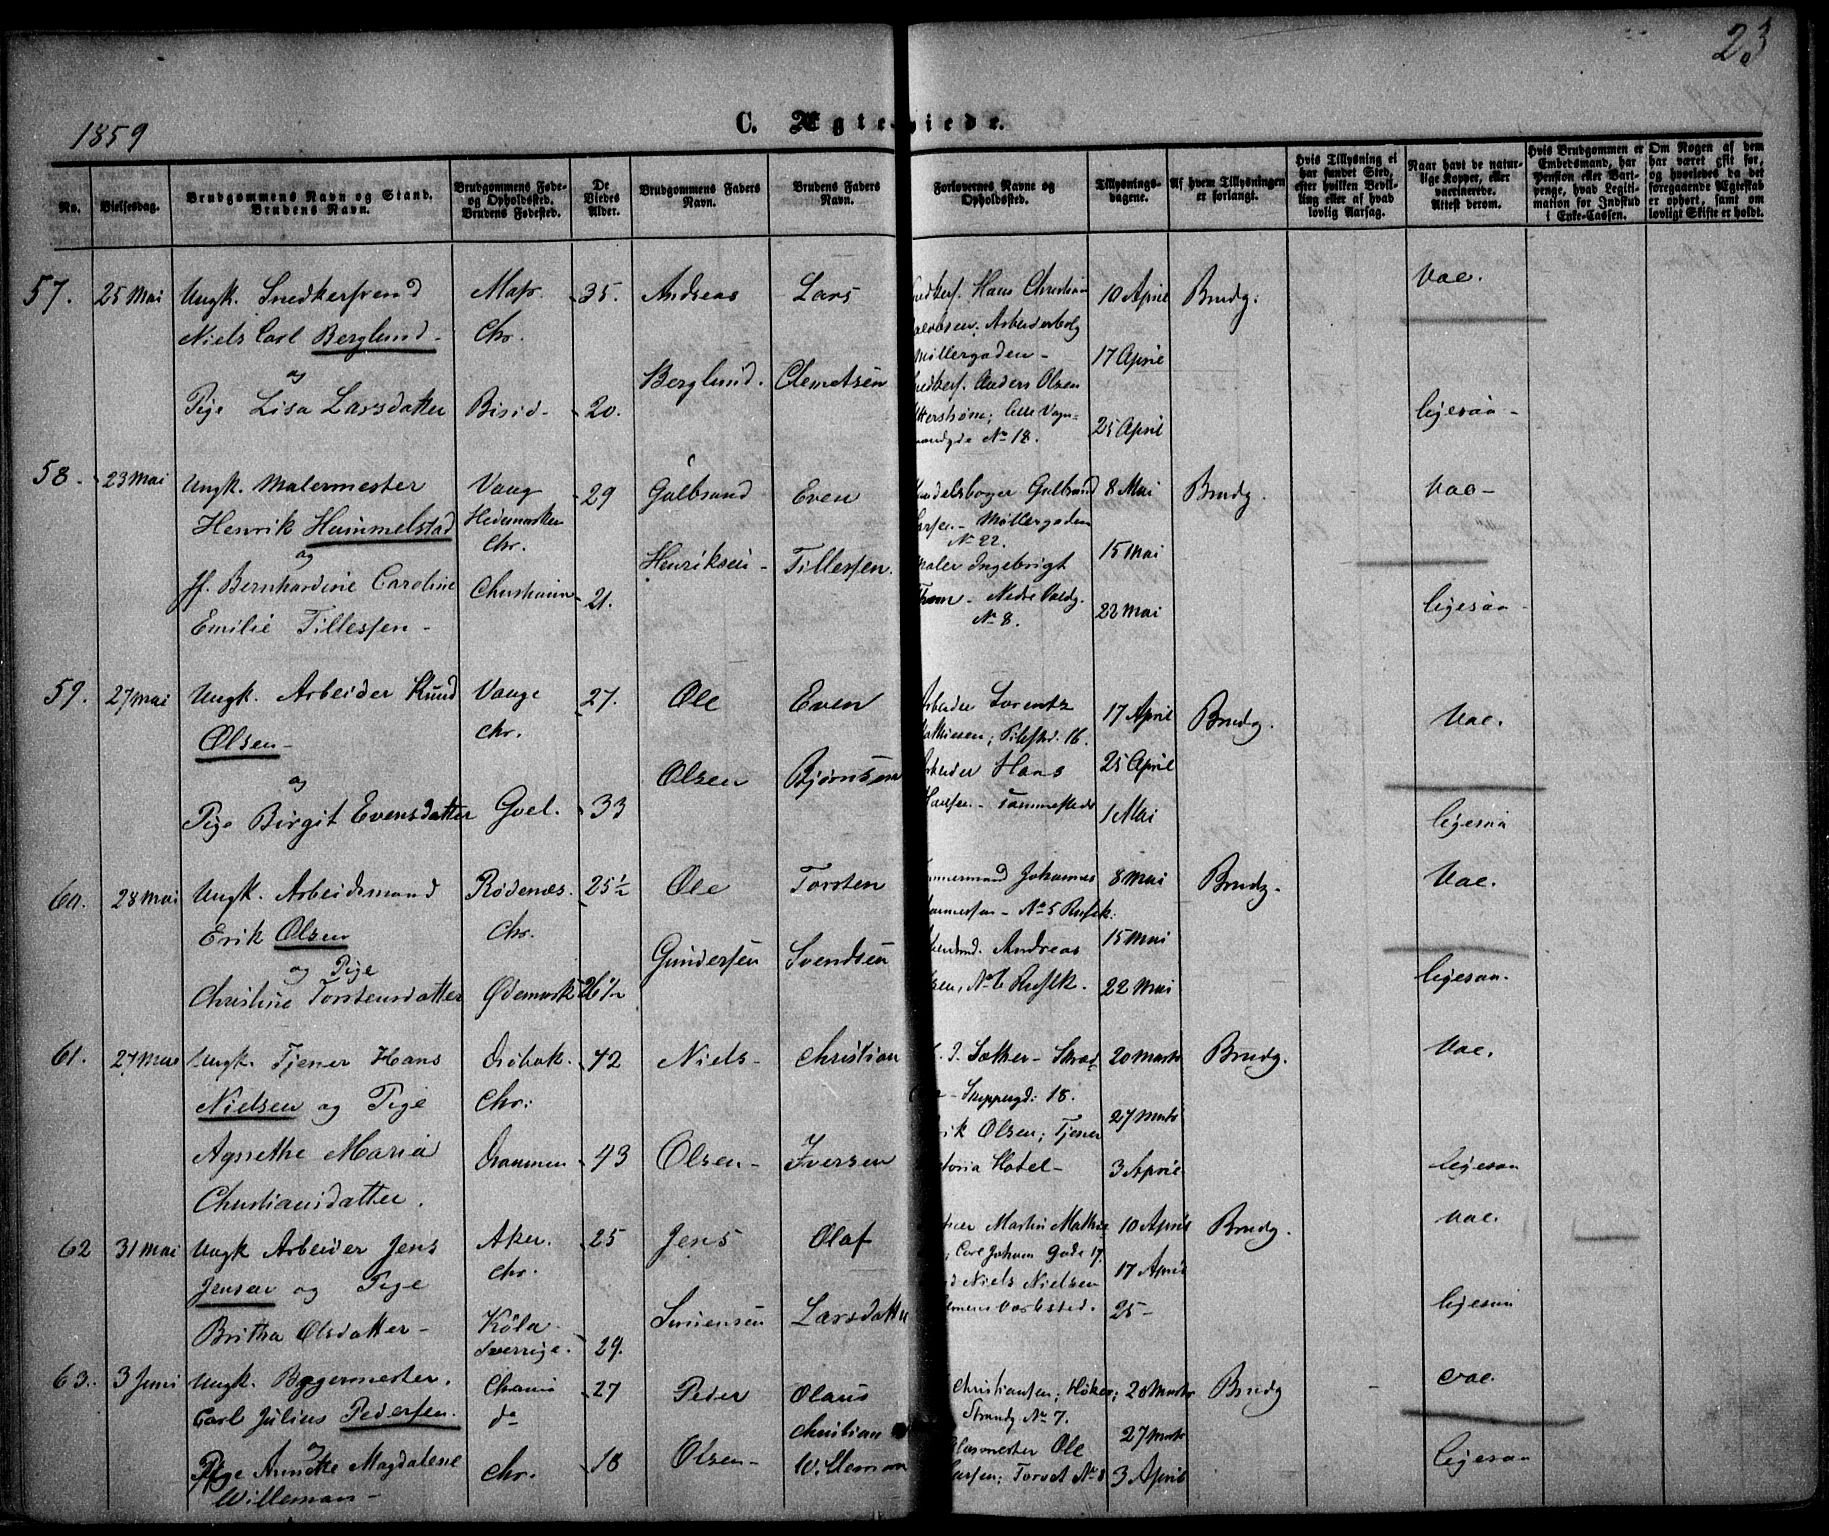 23
1859
C. Ægteviede.
No.
Vielsesdag.
Brudgommens Navn og Stand.
Brudens Navn.
Brudgommens Føde-
og Opholdssted.
Brudens Fødested.
De
Viedes
Alder.
Brudgommens Faders
Navn.
Brudens Faders
Navn.
Forlovernes Navne og
Opholdssted.
Tillysnings-
dagene.
Af hvem Tillysningen
er forlangt.
Hvis Tillysning ei
har fundet Sted,
efter hvilken Bevil-
ling eller af hvad
lovlig Aarsag.
Naar havt de natur-
lige Kopper, eller
vaccinerede.
Attest derom.
Hvis Brudgommen er
Embedsmand, har
Pension eller Vart-
penge, hvad Legiti-
mation for Indskud
i Enke-Cassen.
Om Nogen af dem
har været gift før,
og hvorledes da det
foregaaende Ægteskab
er ophørt, samt om
lovligt Skifte er holdt.
57. 25 Mai Ungk. Snedkersvend 35. Andreas Lars Hans Christian 10 April Brudg. Vac.
Niels Carl Berglund Chr. Arbeiderbolg
og Møllergaden 17 April
Berglund. Clemetsen Anders Olsen
Pige Lisa Larsdatter 20. 25 April ligesaa
No 18.
58. 23 Mai Ungk. Malermester Vang 29 Gulbrand Even Gulbrand 8 Mai Brudg. Vac
Henrik Hummelstad Hedemarken Møllergaden
og Chr. No 22.
Henriksen Tillessen. Maler Ingebrigt 15 Mai
Jf. Bernhardine Caroline Christiania 21. Nedre Voldg. ligesaa
Emilie Tillessen No 8. 22 Mai
59. 27 Mai Ungk. Arbeider Knud Vange 27. Ole Even Arbeider Lorentz 17 April Brudg. Vac.
Olsen Chr. Mathiesen; Pilestr. 16.
og Olsen Bjørnsen Arbeider Hans 25 April
Pige Birgit Evensdatter Goel. 33 Hansen 1 Mai ligesaa
60. 28 Mai Ungk. Arbeidsmand Rødenæs 25½ Ole Torsten Tømmermand Johannes 8 Mai Brudg. Vac.
Erik Olsen Chr. No 5
og Pige Gundersen Svendsen Andreas 15 Mai
Christine Torstensdatter Ødemark 26½ 22 Mai ligesaa
61. 27 Mai Ungk. Tjener Hans Drøbak 42 Niels Christian Sæther 20 Marts Brudg. Vac.
Nielsen og Pige Chr: Skippergd: 18.
27 Marts
Agnethe Maria Drammen 43 Olsen Iversen Olsen; Tjener
Christiansdatter. Hotel 3 April ligesaa
62 31 Mai Ungk Arbeider Jens Aker. 25 Jens Olaf Martin Mathie 10 April Brudg. Vac.
Jensen og Pige Chr. Carl Johans Gade 17.
Niels Nielsen 17 April
Britha Olsdatter Köla Sørensen Larsdatter Værksted. 25 ligesaa
Sverrige. 29.
63. 3 Juni Ungk. Bygmester 27 Peder Olaus Christiansen; Høker; 20 Marts Brudg Vac.
Carl Julius Pedersen. do Strandg No 7.
og Christian 27 Marts
Pige Annette Magdalene Chr. 18 Olsen Willeman Glasmester Ole
Willeman Larsen; Torvet No 8 3 April ligesaa